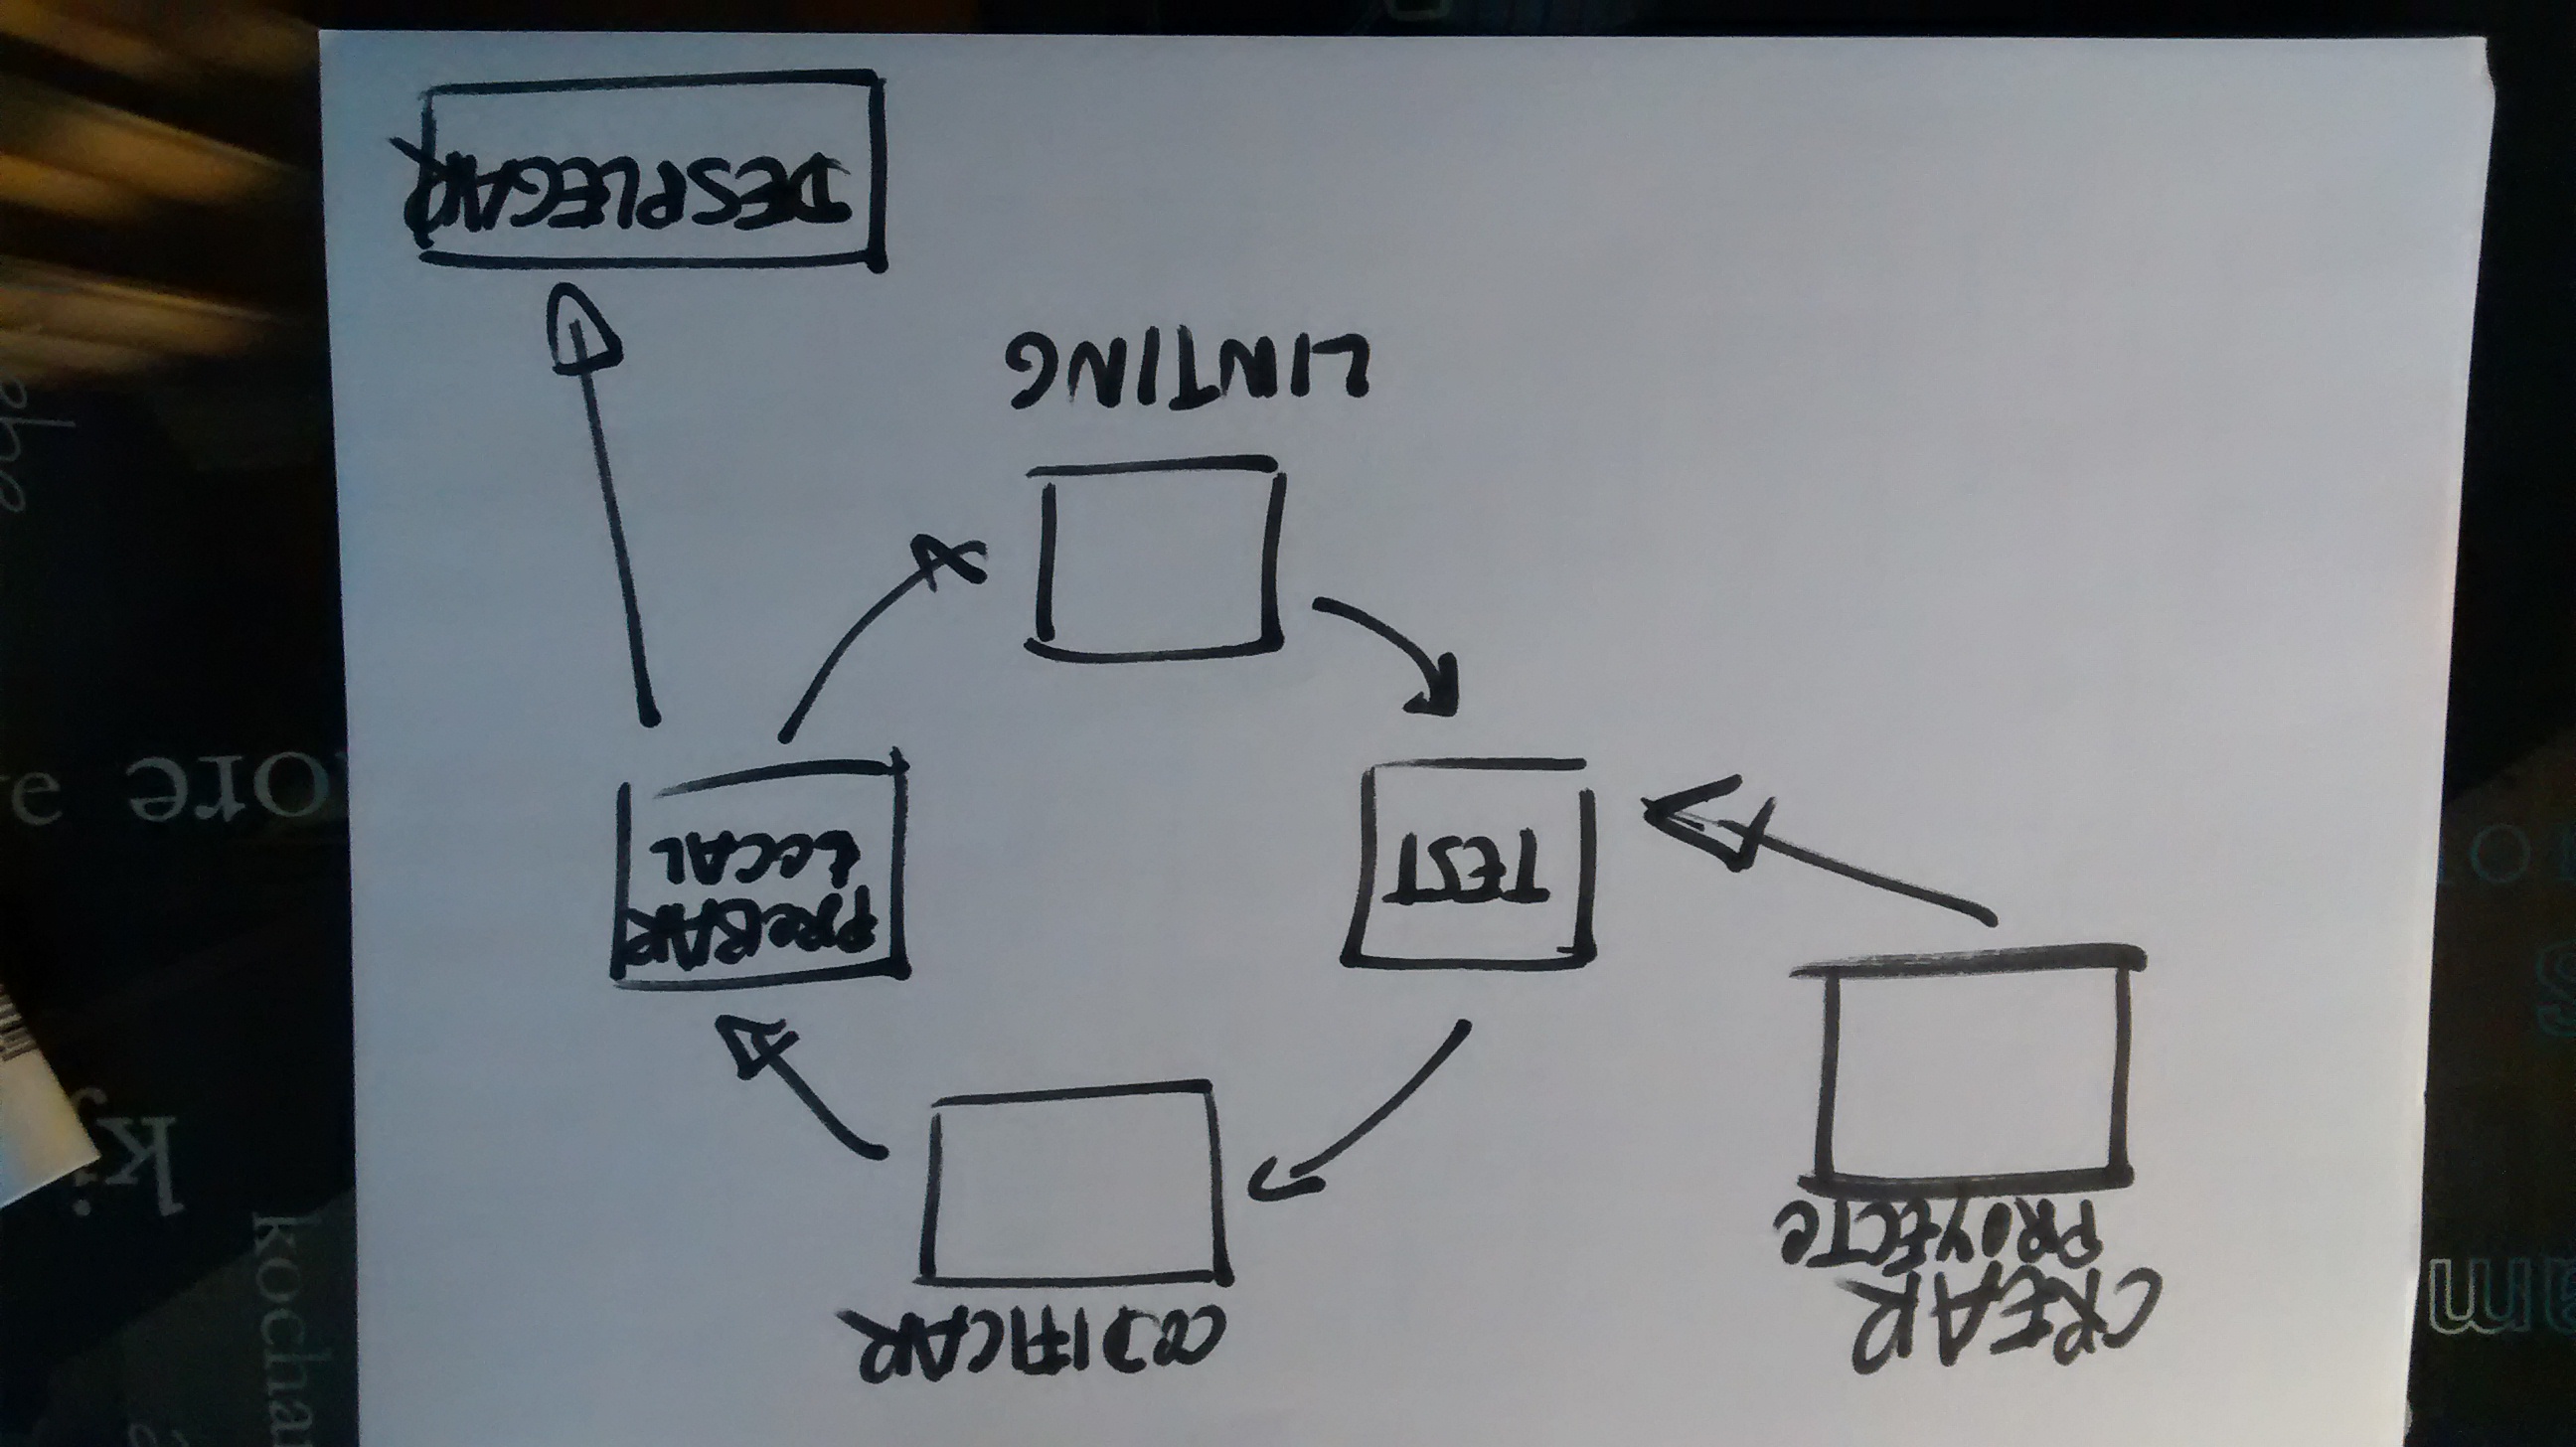 CREAR
PROYECTO
CODIFICAR
TEST
PROBAR
LOCAL
LINTING
DESPLEGAR
am
kochan
kj
ore